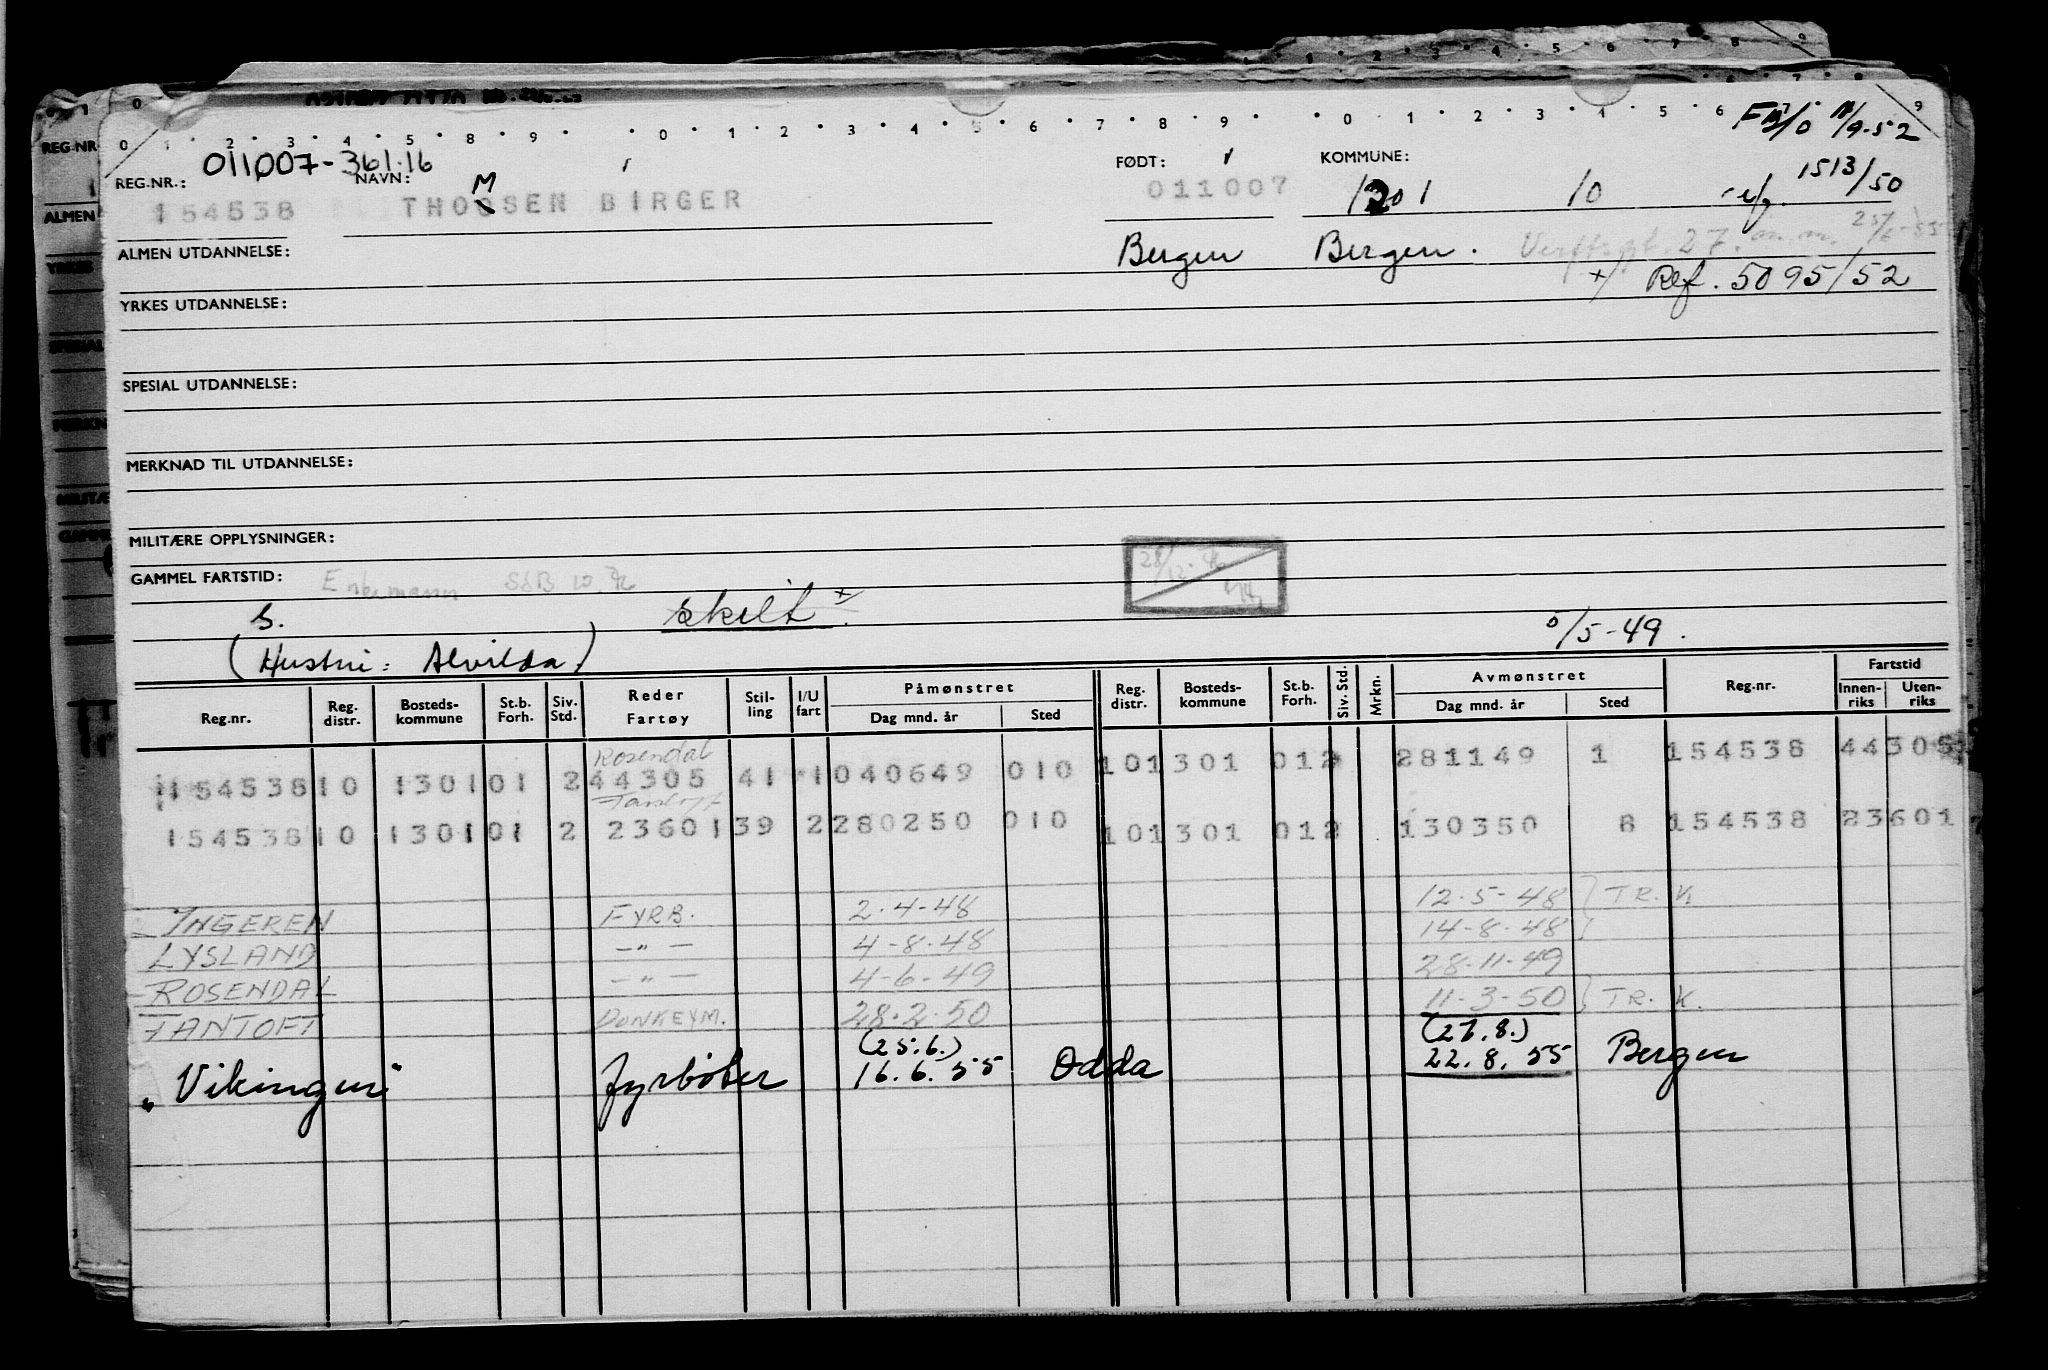 0 1 2 3 4 5 8 9 0 1 2 3 4 5 6 7 8 9 0 1 2 3 4 5 6 9
11/9-52
REG.NR.: 011007-361.16 NAVN: FØDT: KOMMUNE: 1513/50
154538 THOMSEN BIRGER 011007 1201 10 ref.
ALMEN UTDANNELSE: Bergen Bergen. Verftsgt. 27.
YRKES UTDANNELSE: +/ Ref. 5095/52
SPESIAL UTDANNELSE:
MERKNAD TIL UTDANNELSE:
MILITÆRE OPPLYSNINGER:
GAMMEL FARTSTID: Enkemann
S. skilt +
(Hustru: Alvilda) 5/5-49.
Reg.nr. Reg. distr. Bosteds- kommune St.b. Forh. Siv. Std. Reder Fartøy Stil- ling I/U fart Påmønstret Dag mnd. år Sted Reg. distr. Bosteds- kommune St.b. Forh. Siv. Std. Mrkn. Avmønstret Dag mnd. år Sted Reg.nr. Fartstid Innen- riks Uten- riks
Rosendal
154538 10 1301 01 2 44305 41 1 040649 010 10 1301 01 2 281149 1 154538 44305
Fantoft
154538 10 1301 01 2 23601 39 2 280250 010 10 1301 01 2 130350 8 154538 23601
INGEREN FYRB. 2.4-48 12.5-48 } TR. K
LYSLAND -"- 4-8-48 14-8-48
ROSENDAL -"- 4-6-49 28-11-49
FANTOFT DONKEYM. 28.2.50 11-3-50 } TR. K.
(25.6.) (27.8.)
"Vikingen" fyrbøter 16.6.55 Odda 22.8.55 Bergen